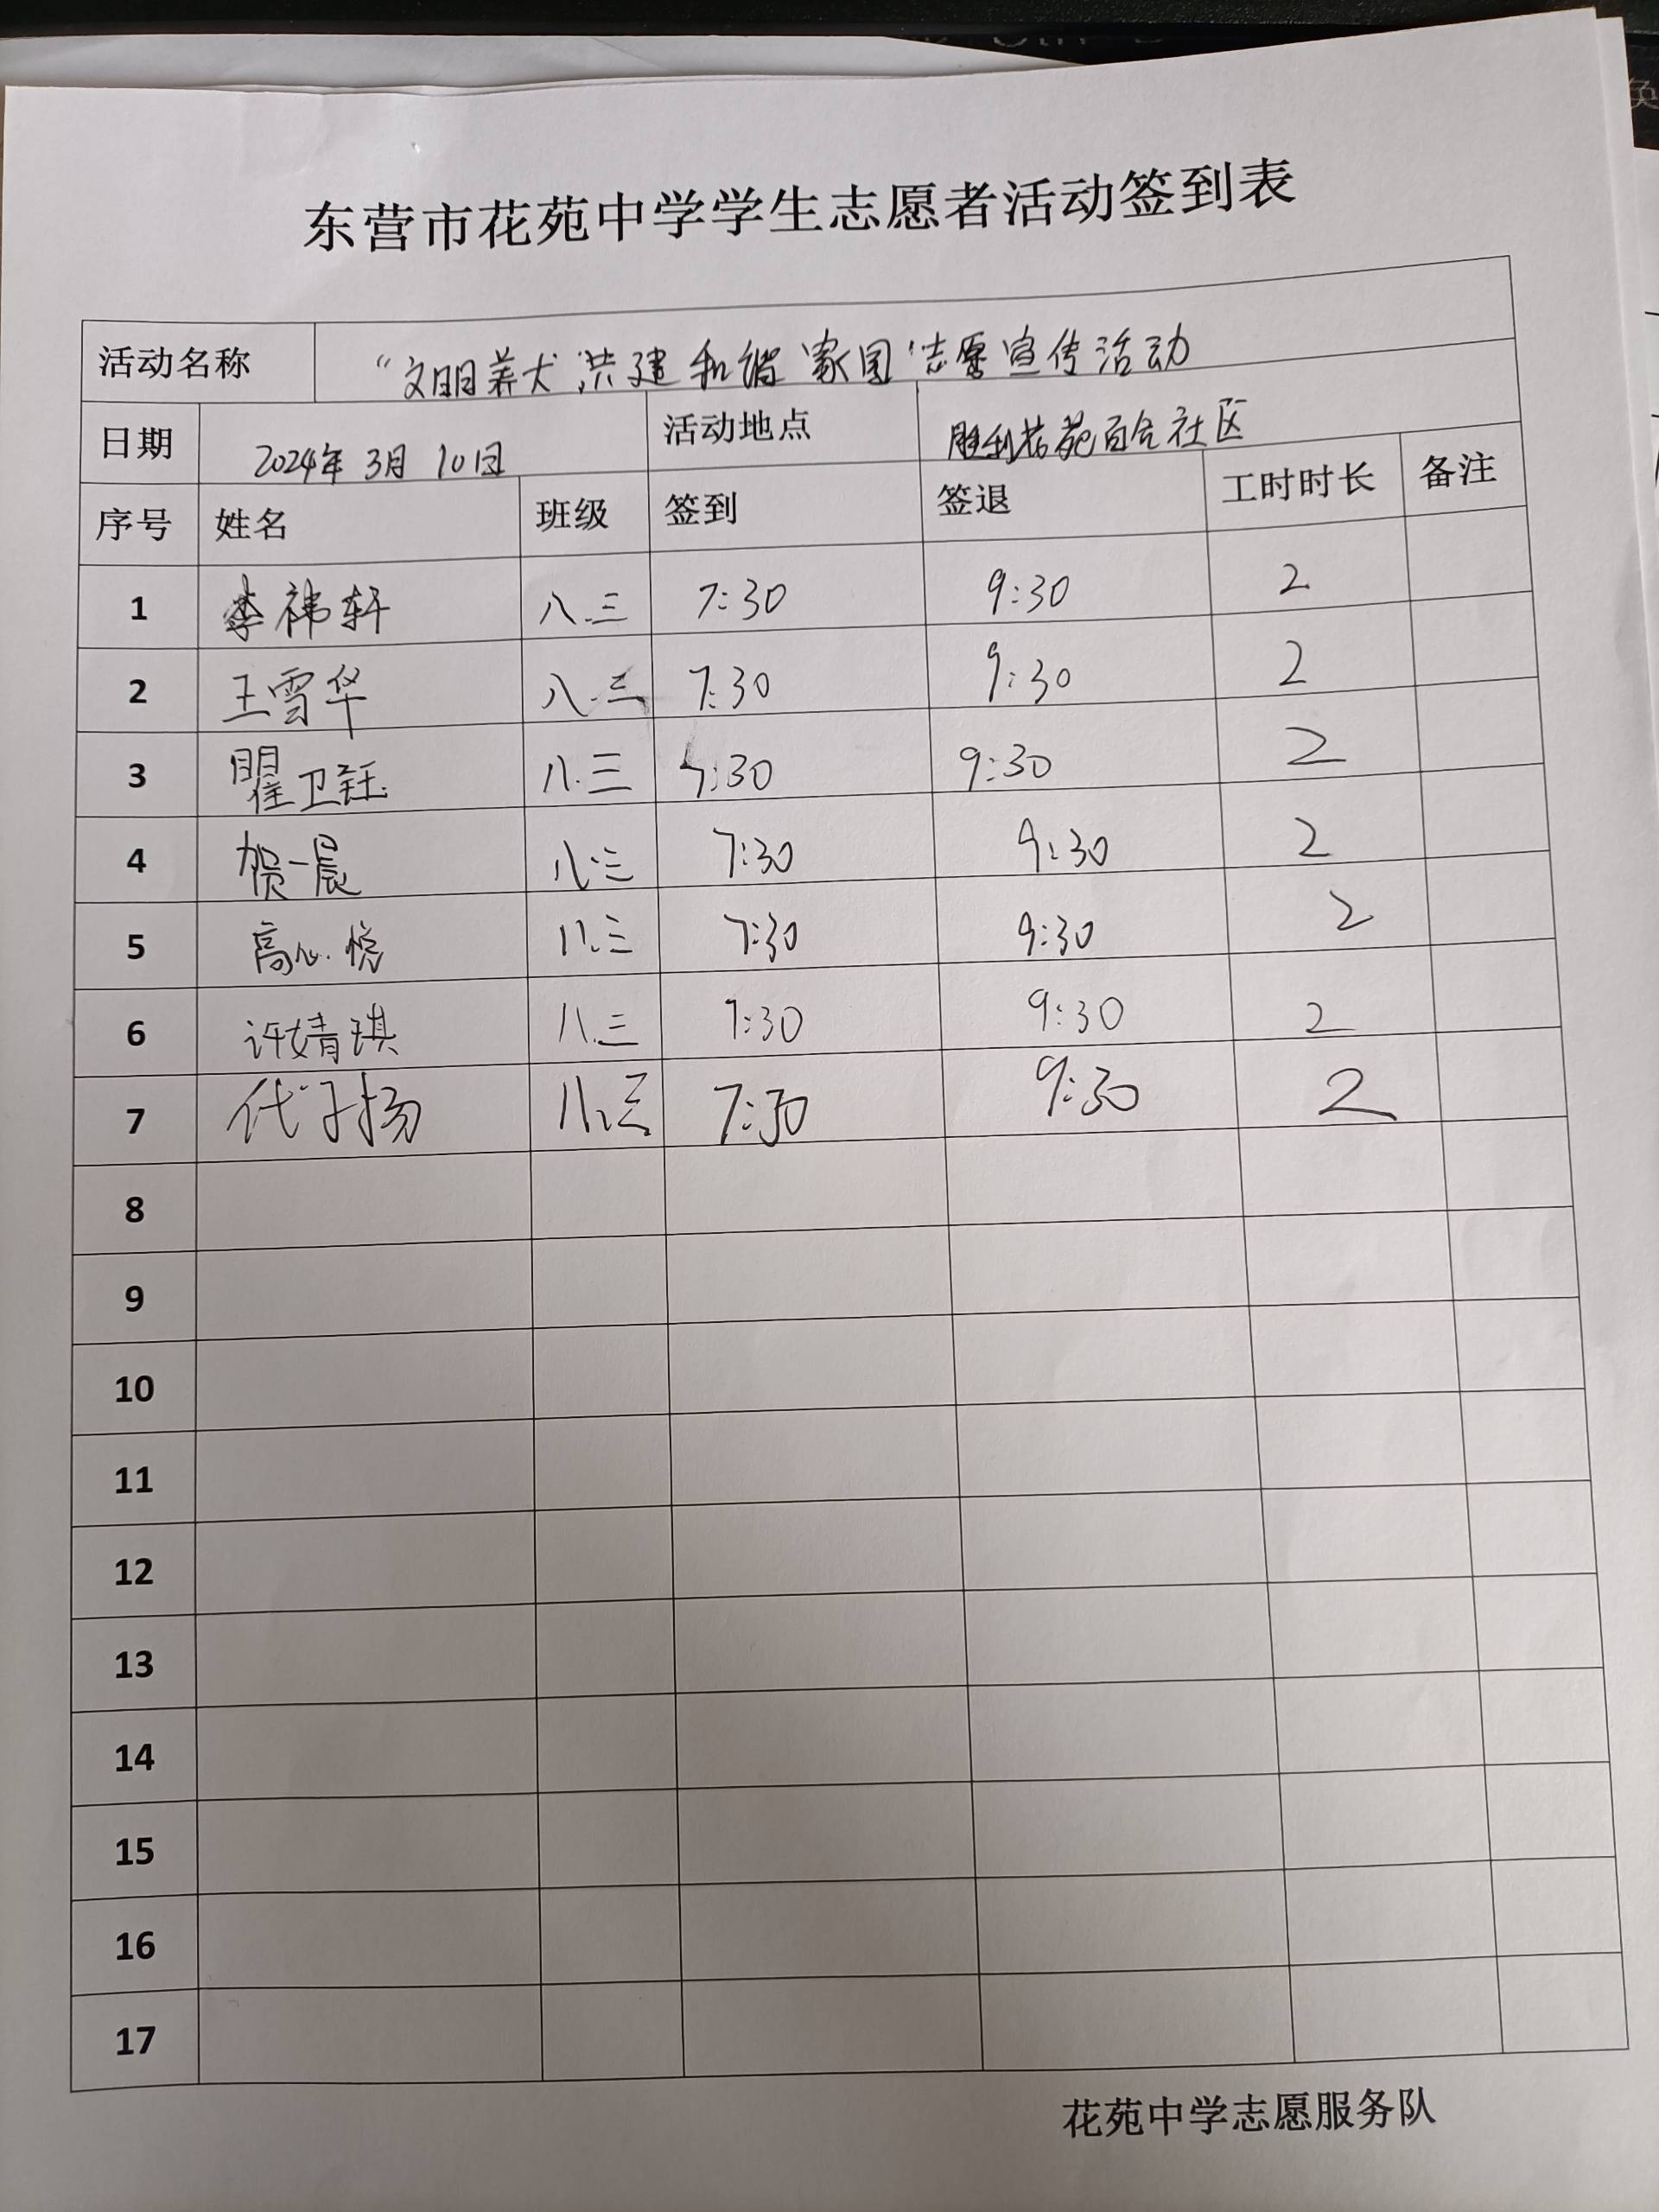 东营市花苑中学学生志愿者活动签到表
活动名称 “文明养犬,共建和谐家园”志愿宣传活动
日期 2024年3月10日 活动地点 胜利花苑百合社区
序号 姓名 班级 签到 签退 工时时长 备注
1 李祎轩 八.三 7:30 9:30 2
2 王雪华 八.三 7:30 9:30 2
3 瞿卫钰 八.三 7:30 9:30 2
4 贺一晨 八.三 7:30 9:30 2
5 高心悦 八.三 7:30 9:30 2
6 许婧琪 八.三 7:30 9:30 2
7 代子扬 八.三 7:30 9:30 2
8
9
10
11
12
13
14
15
16
17
花苑中学志愿服务队